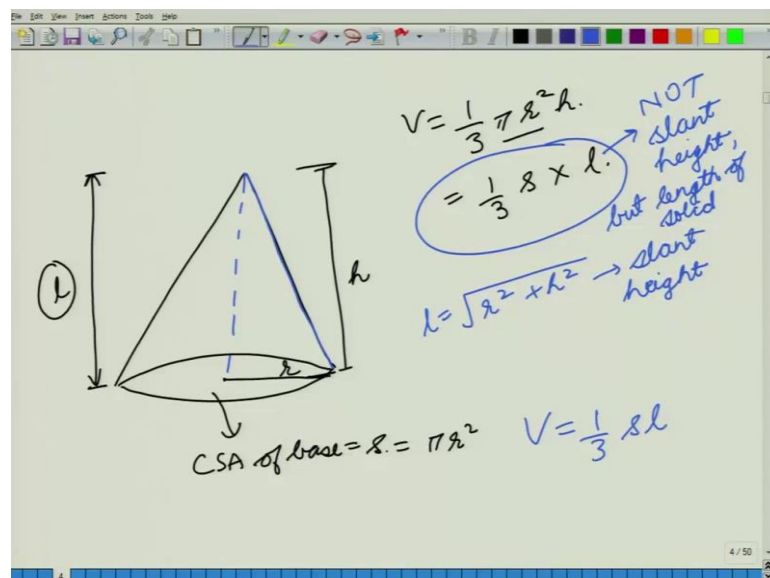 File Edit View Insert Actions Tools Help
B I
V = 1/3 πr²h.
= 1/3 s × l.
NOT
slant
height,
but length of
solid
l = √(r² + h²) → slant
height
l
h
r
CSA of base = s. = πr²
V = 1/3 sl
4 / 50
4